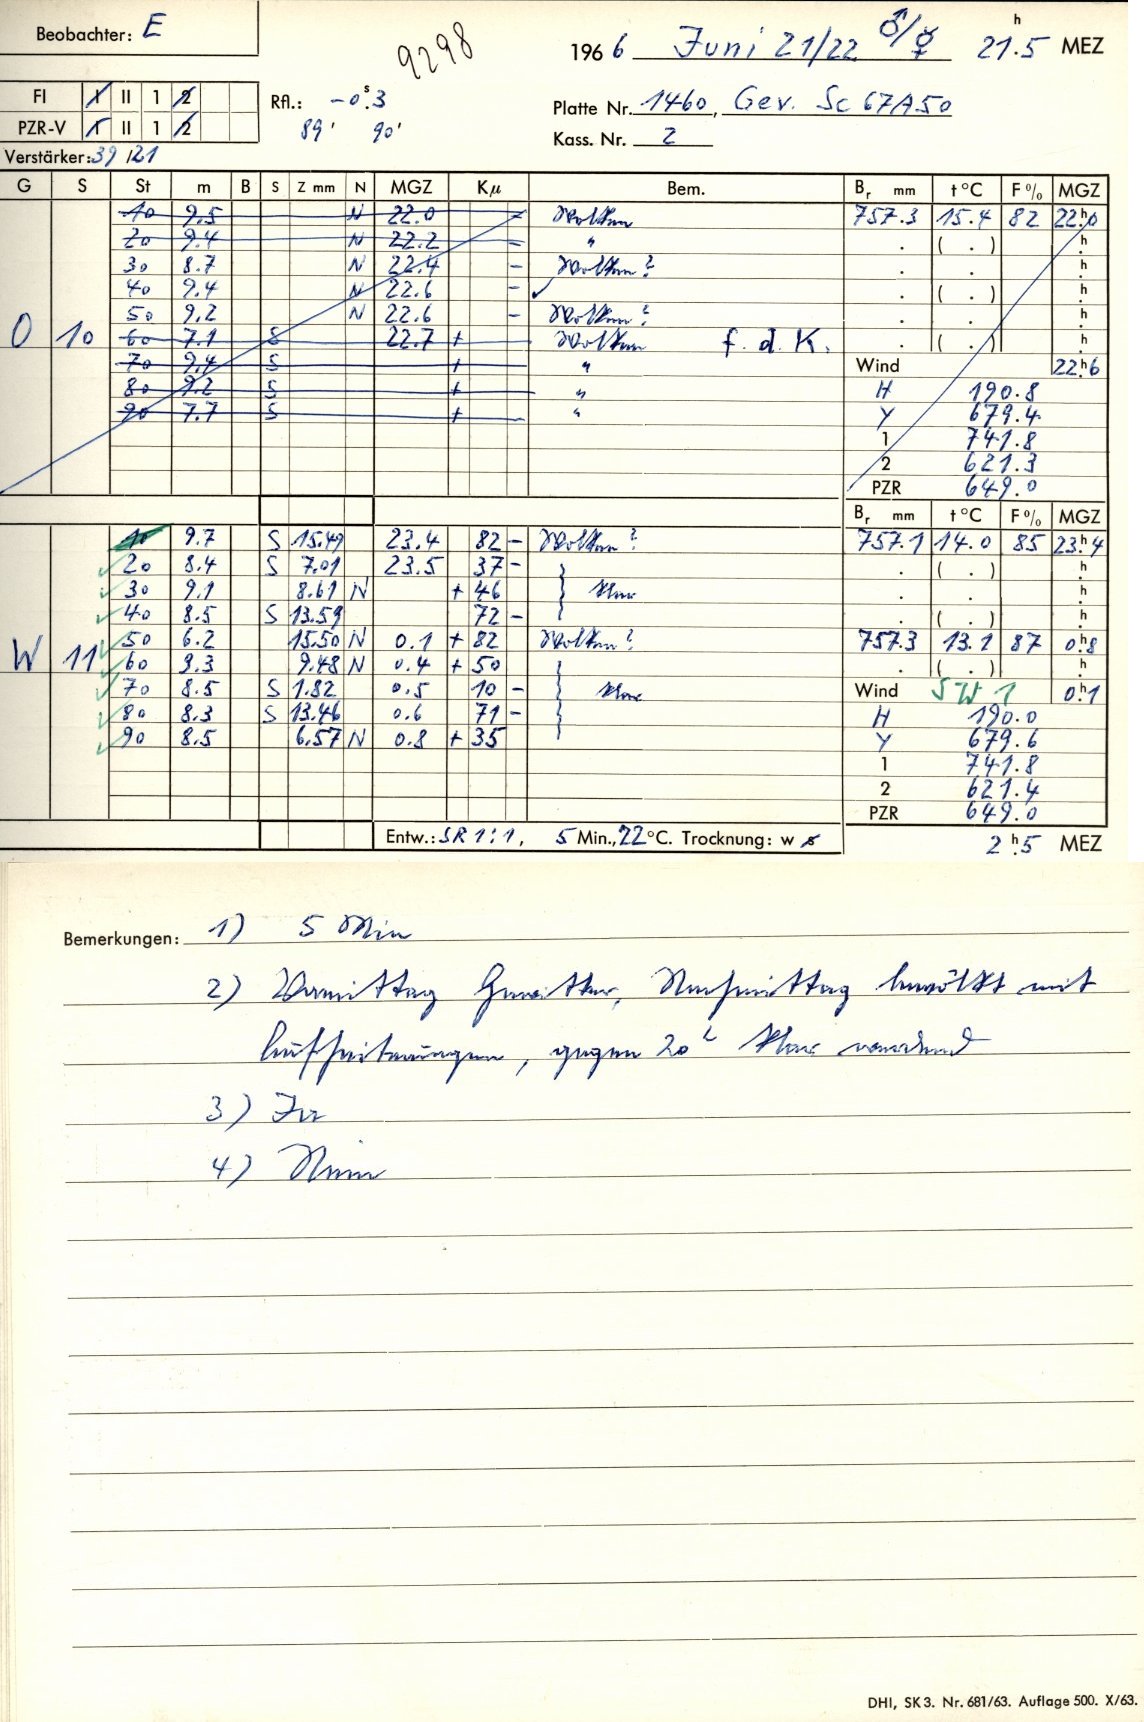 Beobachter: E
9298
1966 Juni 21/22 ♂/☿ 21.5 h MEZ
FI I II 1 2
PZR-V I II 1 2
Rfl.: -0.s3
89' 90'
Platte Nr. 1460, Gev. Sc 67A50
Kass. Nr. 2
Verstärker: 39 /21
G S St m B S Z mm N MGZ Kμ Bem. Br mm t °C F % MGZ
10 9.5 N 22.0 - Wolken 757.3 15.4 82 22h.0
20 9.4 N 22.2 - " . ( . ) h
30 8.7 N 22.4 - Wolken? . . h
40 9.4 N 22.6 - . ( . ) h
50 9.2 N 22.6 - Wolken? . . h
O 10 60 7.1 S 22.7 + Wolken f. d. K. . ( . ) h
70 9.4 S + " Wind 22h6
80 9.2 S + " H 190.8
90 7.7 S + " Y 679.4
1 741.8
2 621.3
PZR 649.0
Br mm t °C F % MGZ
10 9.7 S 15.49 23.4 82 - Wolken? 757.1 14.0 85 23h4
20 8.4 S 7.01 23.5 37 - . ( . ) h
30 9.1 8.61 N + 46 klar . . h
40 8.5 S 13.59 72 - . ( . ) h
50 6.2 15.50 N 0.1 + 82 Wolken? 757.3 13.1 87 0h8
W 11 60 9.3 9.48 N 0.4 + 50 . ( . ) h
70 8.5 S 1.82 0.5 10 - klar Wind SW 1 0h1
80 8.3 S 13.46 0.6 71 - H 190.0
90 8.5 6.57 N 0.8 + 35 Y 679.6
1 741.8
2 621.4
PZR 649.0
Entw.: SR 1:1, 5 Min., 22 °C. Trocknung: w s 2 h.5 MEZ
Bemerkungen: 1) 5 Min
2) Vormittag Gewitter, Nachmittag bewölkt mit
Aufheiterungen, gegen 20h klar werdend
3) Ja
4) Nein
DHI, SK 3. Nr. 681/63. Auflage 500. X/63.